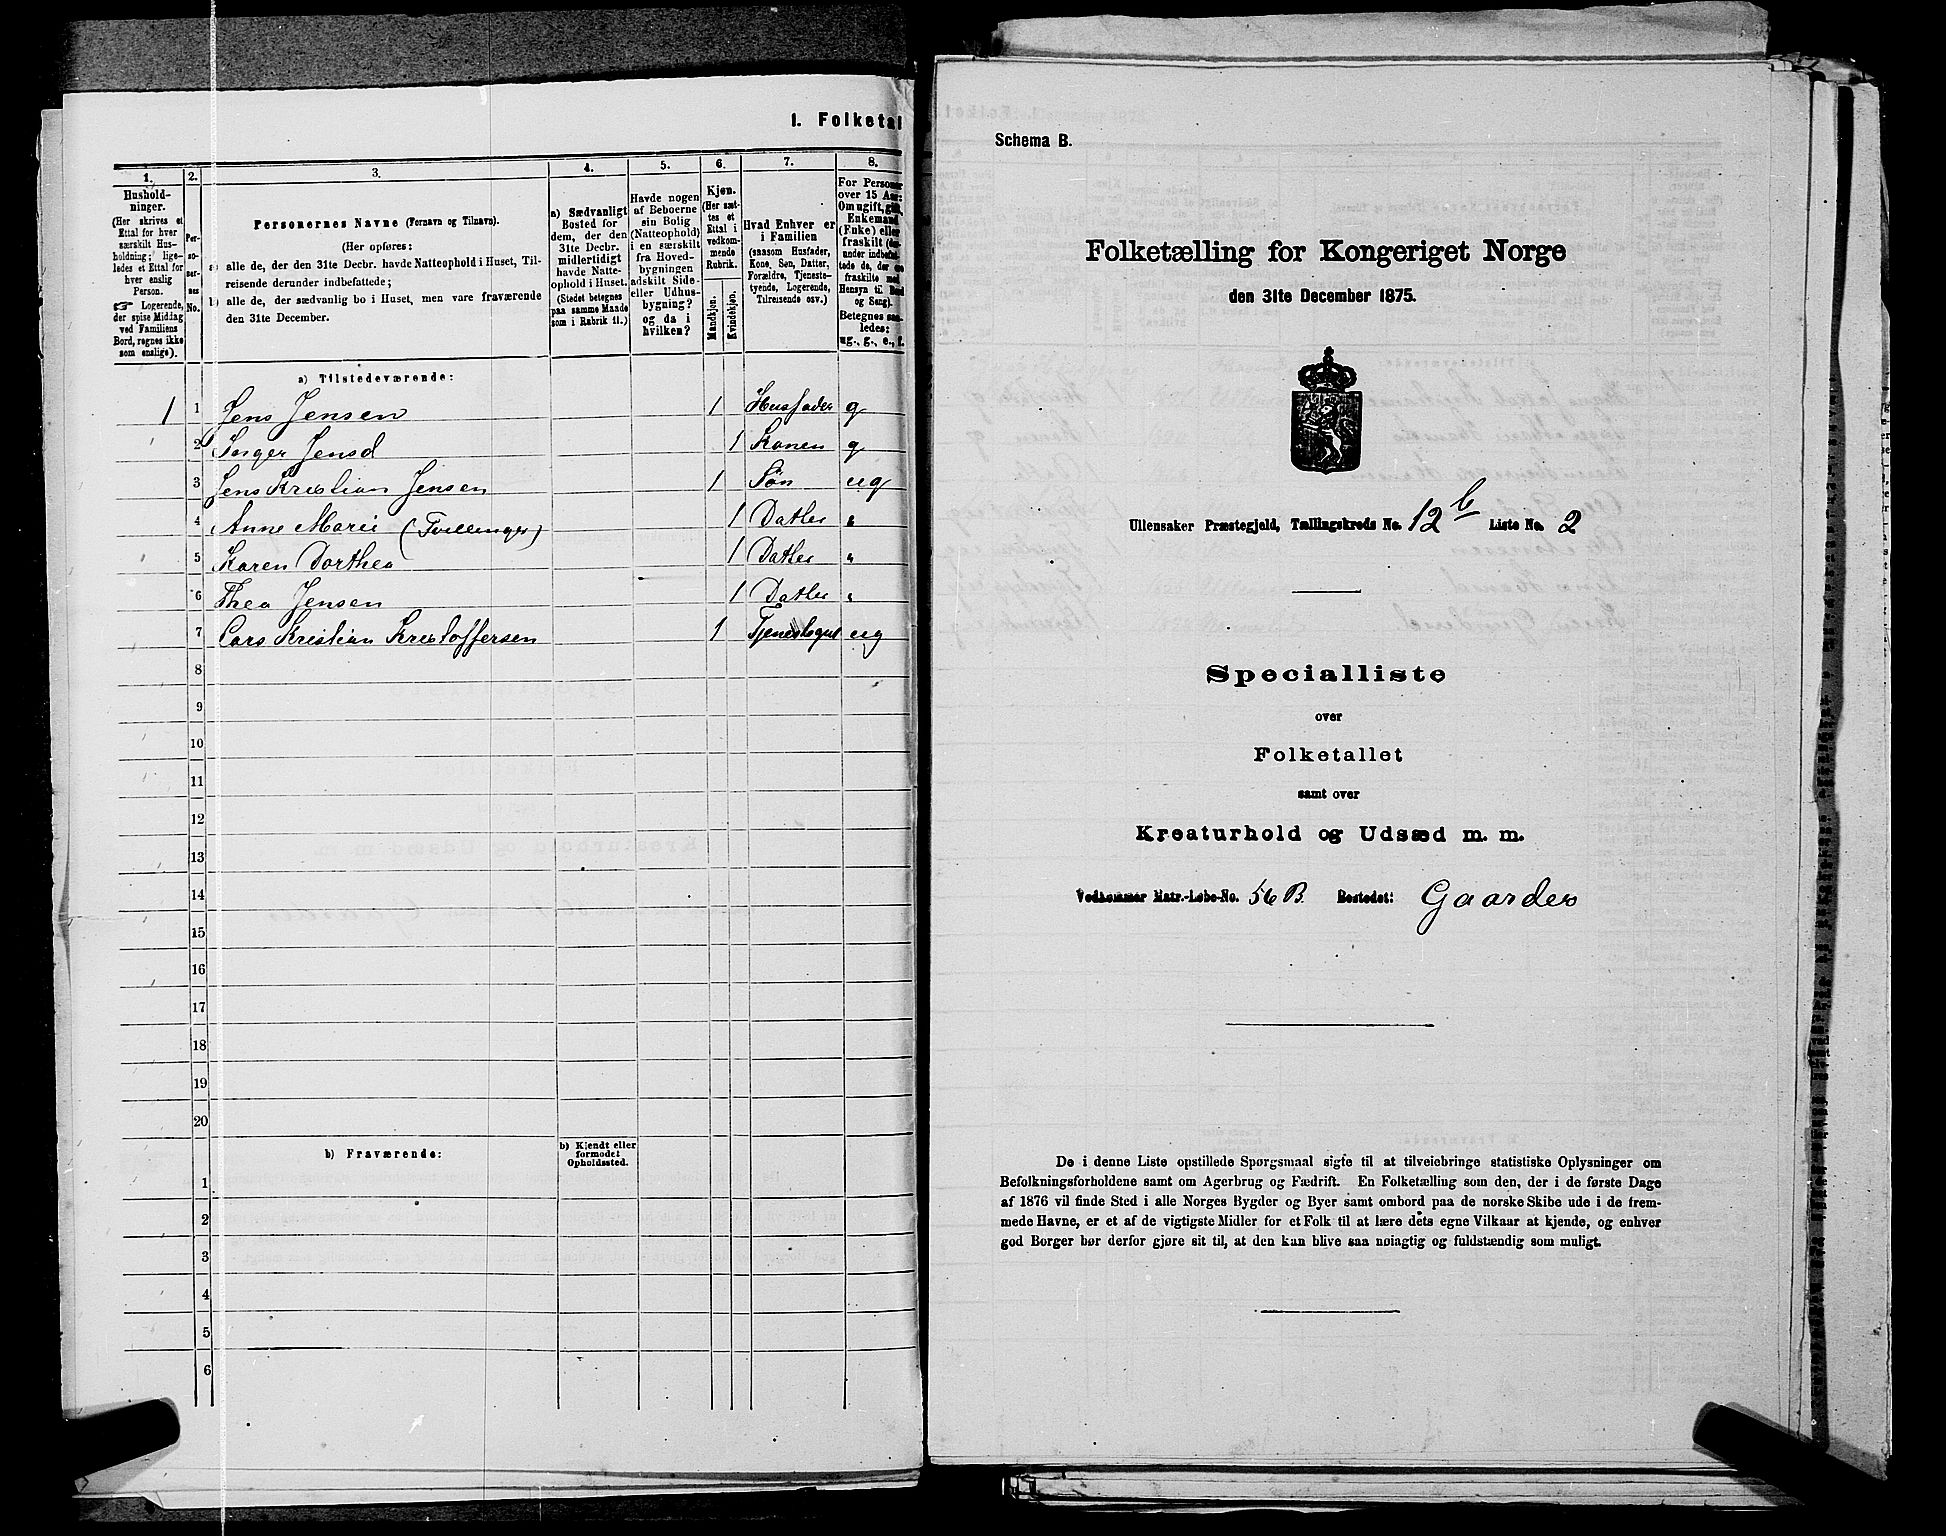 1. Folketal
1.
2.
3.
4.
5.
6.
7.
8.
Hushold-
ninger.
(Her skrives et
Ettal for hver
særskilt Hus-
holdning; lige-
ledes et Ettal for
hver enslig
Person.
☞ Logerende,
der spise Middag
ved Familiens
Bord, regnes ikke
som enslige).
Per-
so-
ner-
nes
No.
Personernes Navne (Fornavn og Tilnavn).
(Her opføres:
a) alle de, der den 31te Decbr. havde Natteophold i Huset, Til-
reisende derunder indbefattede;
b) alle de, der sædvanlig bo i Huset, men vare fraværende
den 31te December.
a) Sædvanligt
Bosted for
dem, der den
31te Decbr.
midlertidigt
havde Natte-
ophold i Huset.
(Stedet betegnes
paa samme Maade
som i Rubrik 11.)
Havde nogen
af Beboerne
sin Bolig
(Natteophold)
i en særskilt
fra Hoved-
bygningen
adskilt Side-
eller Udhus-
bygning?
og da i
hvilken?
Kjøn.
(Her sæt-
tes et
Ettal i
vedkom-
mende
Rubrik.
Mandkjøn.
Kvindekjøn.
Hvad Enhver er
i Familien
(saasom Husfader,
Kone, Søn, Datter,
Forældre, Tjeneste-
tyende, Logerende,
Tilreisende osv.)
For Personer
over 15 Aar:
Om ugift, gift,
Enkemand
(Enke) eller
fraskilt (der-
under indbefat-
tede de, der ere
fraskilte med
Hensyn til Bord
og Seng).
Betegnes saa-
ledes:
ug., g., e., f.
a) Tilstedeværende:
1 1 Jens Jensen 1 Husfader g
2 Inger Jensd 1 Konen g
3 Jens Kristian Jensen 1 Søn ug
4 Anne Marie (Tvillinger) 1 Datter "
5 Karen Dorthea 1 Datter "
6 Thea Jensen 1 Datter "
7 Lars Kristian Kristoffersen 1 Tjenestegut ug
8
9
10
11
12
13
14
15
16
17
18
19
20
b) Fraværende:
b) Kjendt eller
formodet
Opholdssted.
1
2
3
4
5
6
Schema B.
Folketælling for Kongeriget Norge
den 31te December 1875.
Ullensaker Præstegjeld, Tællingskreds No. 12 b Liste No. 2
Specialliste
over
Folketallet
samt over
Kreaturhold og Udsæd m. m.
Vedkommer Matr.-Løbe-No. 56 B. Bostedet: Gaarder
De i denne Liste opstillede Spørgsmaal sigte til at tilveiebringe statistiske Oplysninger om
Befolkningsforholdene samt om Agerbrug og Fædrift. En Folketælling som den, der i de første Dage
af 1876 vil finde Sted i alle Norges Bygder og Byer samt ombord paa de norske Skibe ude i de frem-
mede Havne, er et af de vigtigste Midler for et Folk til at lære dets egne Vilkaar at kjende, og enhver
god Borger bør derfor gjøre sit til, at den kan blive saa nøiagtig og fuldstændig som muligt.